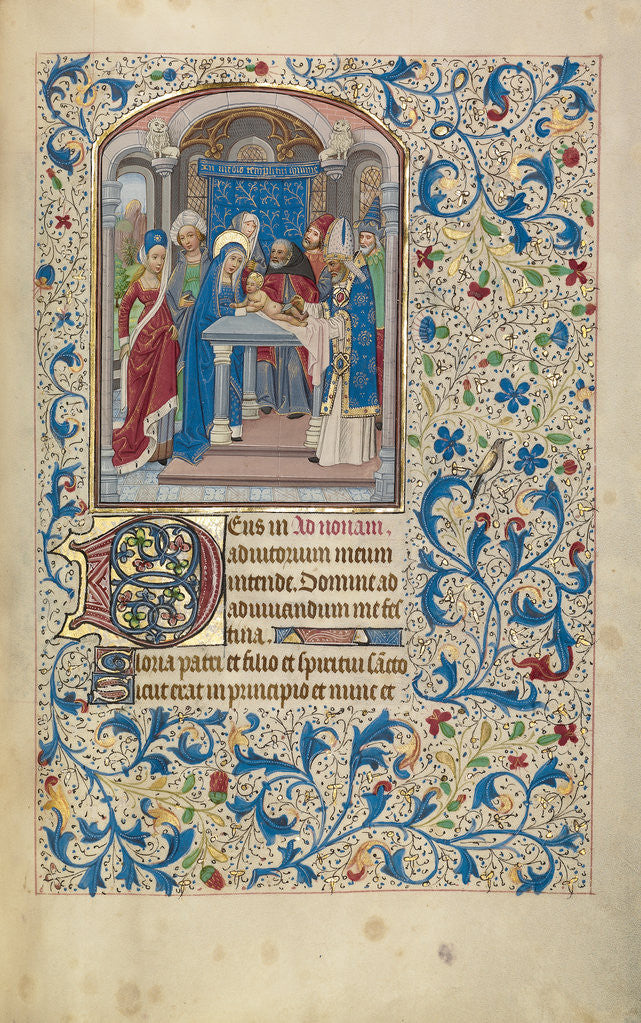 In medio templi tui
Deus in Ad nonam.
adiutorium meum
intende. Domine ad
adiuuandum me fes
tina.
Gloria patri et filio et spiritui sancto
Sicut erat in principio et nunc et